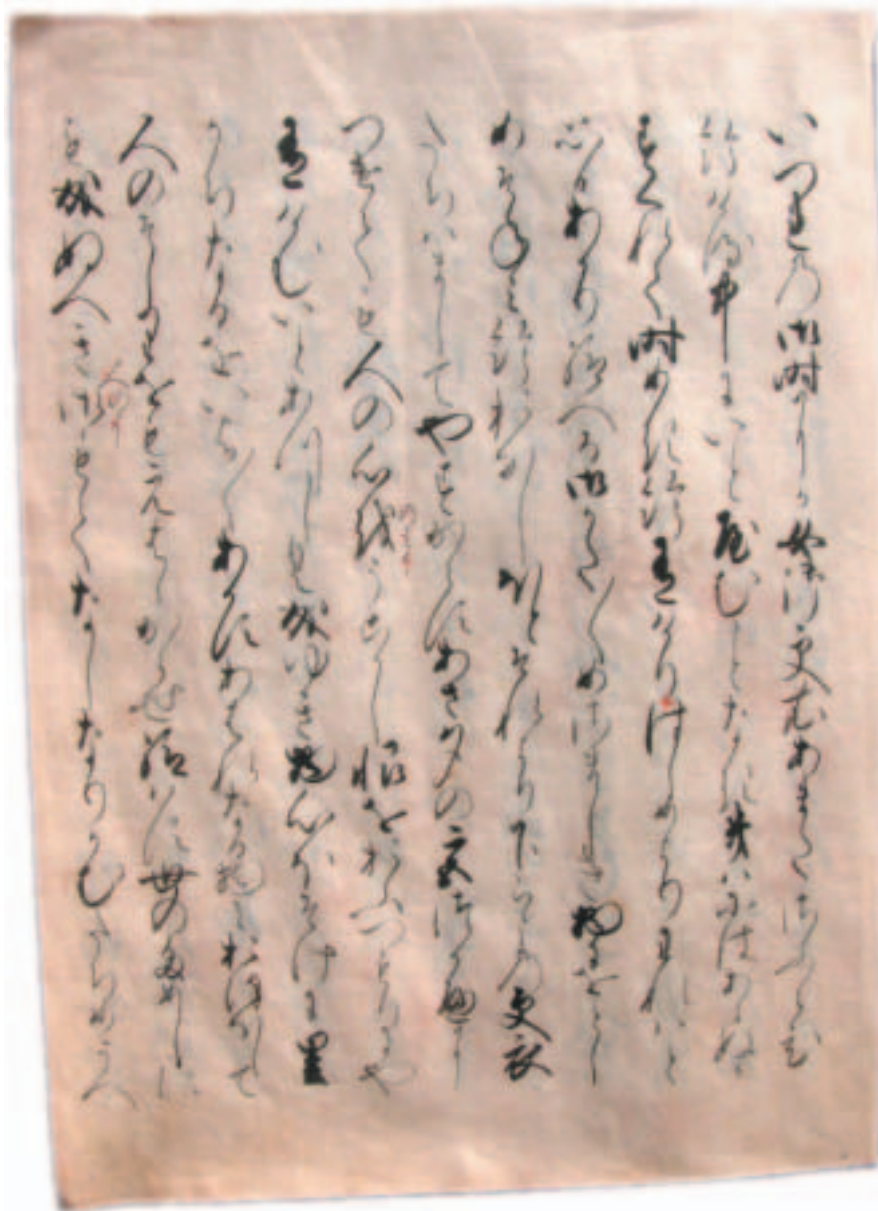 いつれの御時にか女御更衣あまたさふらひ
給ける中にいとやむことなき際にはあらぬか
すくれて時めき給有けりはしめよりわれはと
思あかり給へる御かた／＼めさましき物におとし
めそねみ給おなしほとそれより下らうの更衣
たちはましてやすからすあさ夕の宮つかへに
つけても人の心をうこかし恨をおふつもりにや
有けむいとあつしく成ゆき物心ほそけに里
かちなるをいよ／＼あかすあはれなる物におほして
人のそしりをもえはゝからせ給はす世のためしに
も成ぬへき御もてなしなりかむたちめうへ